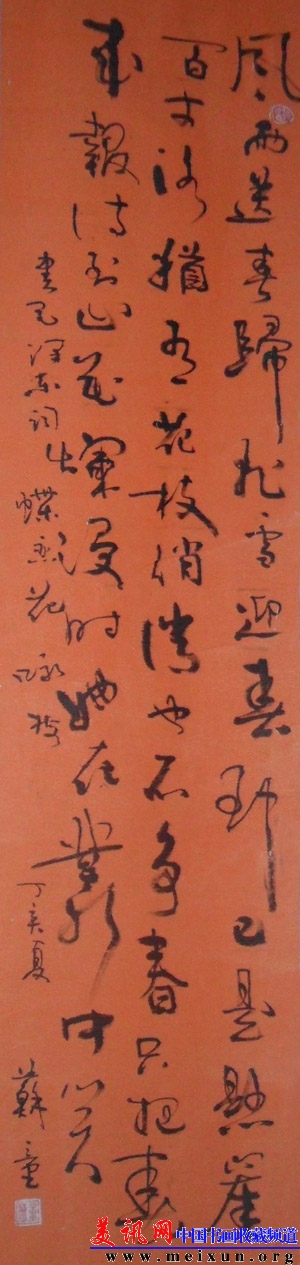 風雨送春歸飛雪迎春到已是懸崖
百丈冰猶有花枝俏俏也不爭春只把春
來報待到山花爛漫时她在叢中笑
書毛澤東詞蝶戀花詠梅
丁亥夏
蘇
美讯网 中国书画收藏频道
www.meixun.org